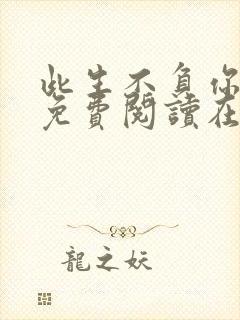 此生不負你
免費閱讀在
龍之妖